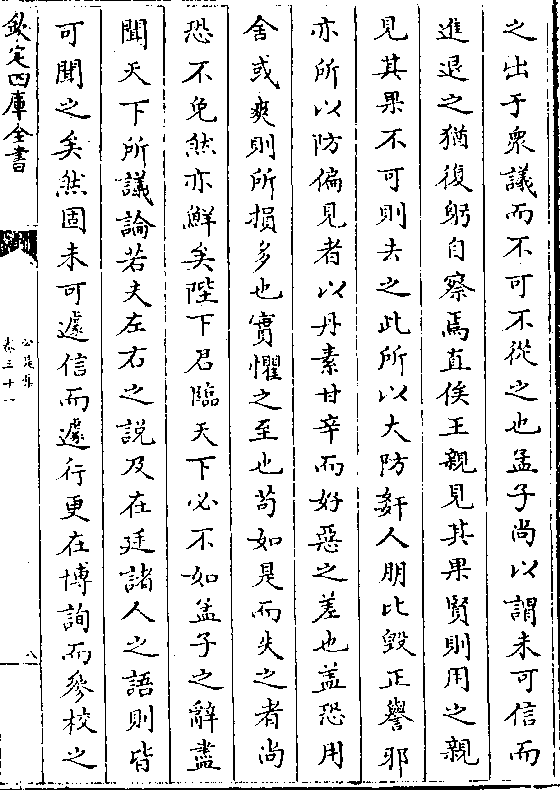 之出于衆議而不可不從之也孟子尚以謂未可信而
進退之猶復躬自察焉直俟王親見其果賢則用之親
見其果不可則去之此所以大防姧人朋比毁正譽邪
亦所以防偏見者以丹素甘辛而好惡之差也盖恐用
舍或爽則所損多也實懼之至也苟如是而失之者尚
恐不免然亦鮮矣陛下君臨天下必不如孟子之辭盡
聞天下所議論若夫左右之説及在廷諸人之語則皆
可聞之矣然固未可遽信而遽行更在博詢而參校之
欽定四庫全書
公是集
卷三十一
八